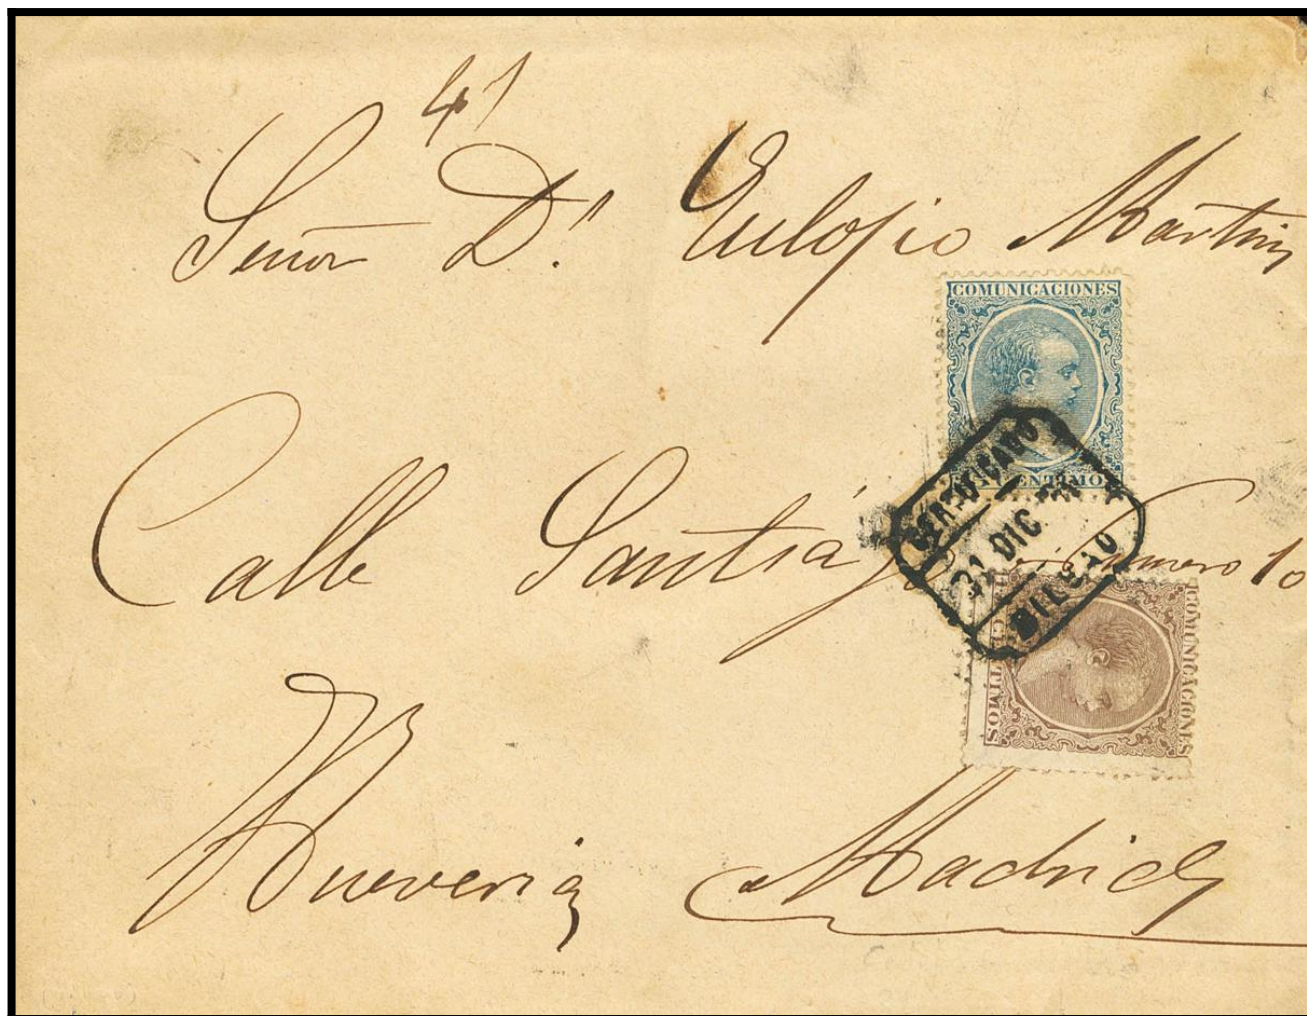 41
Señor D. Eulogio Martin
COMUNICACIONES
CENTIMOS
CERTIFICADO
31 DIC
BILBAO
Calle Santiágo número 10
COMUNICACIONES
CENTIMOS
Hueveria Madrid